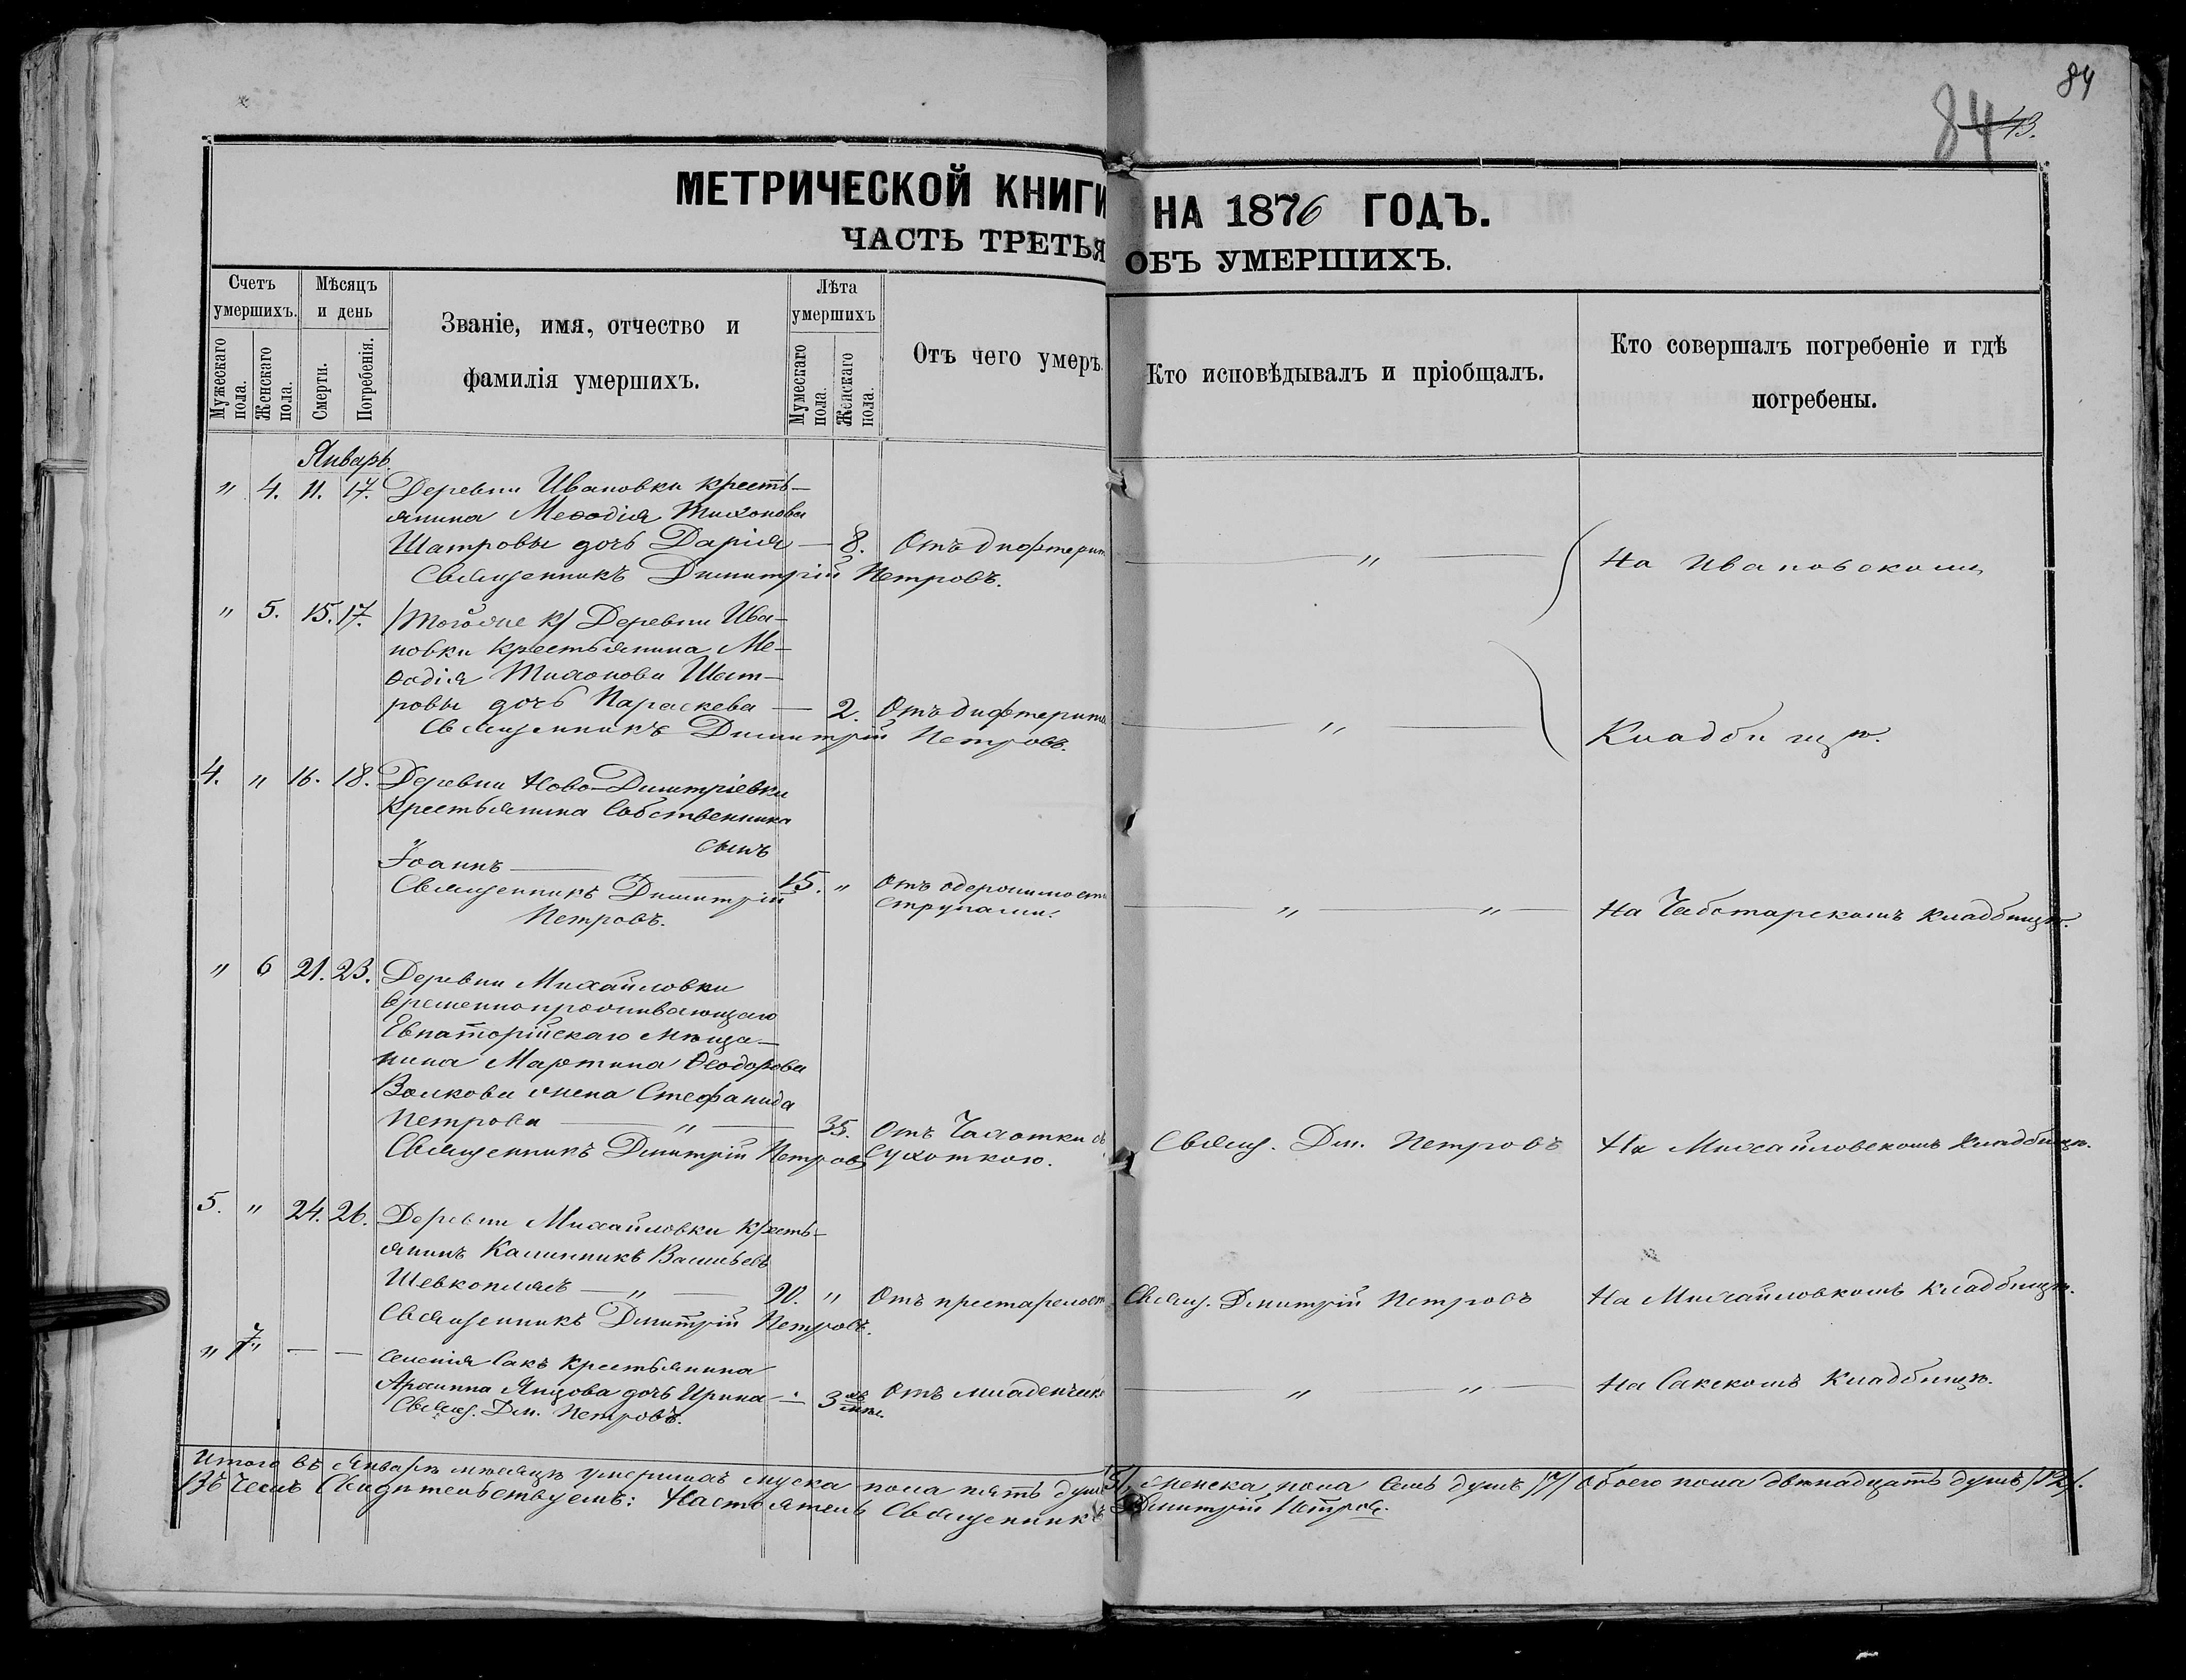 84
84 43.
МЕТРИЧЕСКОЙ КНИГИ НА 1876 ГОДЪ.
ЧАСТЬ ТРЕТЬЯ ОБЪ УМЕРШИХЪ.
Счетъ умершихъ.
Мужескаго пола.
Женскаго пола.
Мѣсяцъ и день
Смерти.
Погребенія.
Званіе, имя, отчество и
фамилія умершихъ.
Лѣта умершихъ
Мужескаго пола.
Женскаго пола.
Отъ чего умеръ.
Кто исповѣдывалъ и пріобщалъ.
Кто совершалъ погребеніе и гдѣ
погребены.
Январь
" 4. 11. 17. Деревни Ивановки кресть-
янина Меѳодія Тихонова
Шатровы дочь Дарія — 8. Отъ дифтерит — " — На Ивановскомъ
Священникъ Димитрій Петровъ.
" 5. 15. 17. /Тогоже К/ Деревни Ива-
новки крестьянина Ме-
ѳодія Тихонова Шат-
ровы дочь Параскева — 2. Отъ дифтерита — " — Кладбищѣ.
Священникъ Димитрій Петровъ.
4. " 16. 18. Деревни Ново-Димитріевки
Крестьянина Собственника
сынъ
Іоаннъ — 15. " Отъ одержимост
струпами. — " " — На Чеботарскомъ кладбищѣ.
Священникъ Димитрій
Петровъ.
" 6 21. 23. Деревни Михайловки
временнопроживающаго
Евпаторійскаго мѣща-
нина Мартина Ѳеодорова
Волкова жена Стефанида
Петрова — " — 35. Отъ Чахотки съ
Сухоткою. Свящ. Дм. Петровъ На Михайловскомъ Кладбищѣ.
Священникъ Дмитрій Петровъ
5. " 24. 26. Деревни Михайловки Кресть-
янинъ Каллиникъ Васильевъ
Шевкоплясъ — " — 90. " Отъ престарелост Свящ. Дмитрій Петровъ На Михайловкомъ Кладбищѣ.
Священникъ Дмитрій Петровъ.
" 7 — — селенія Сакъ крестьянина
дочь Ирина — 3 Отъ младенческ — " " — На Сакскомъ Кладбищѣ.
Свящ. Дм. Петровъ.
Итого въ Январѣ мѣсяцѣ умершихъ мужска пола пять душъ /5/, женска пола семь душъ /7/ обоего пола двѣнадцать душъ /12/.
Въ чемъ Свидѣтельствуемъ: Настоятель Священникъ Дмитрій Петровъ.